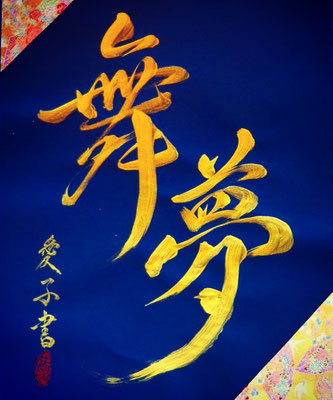 舞夢
愛子書